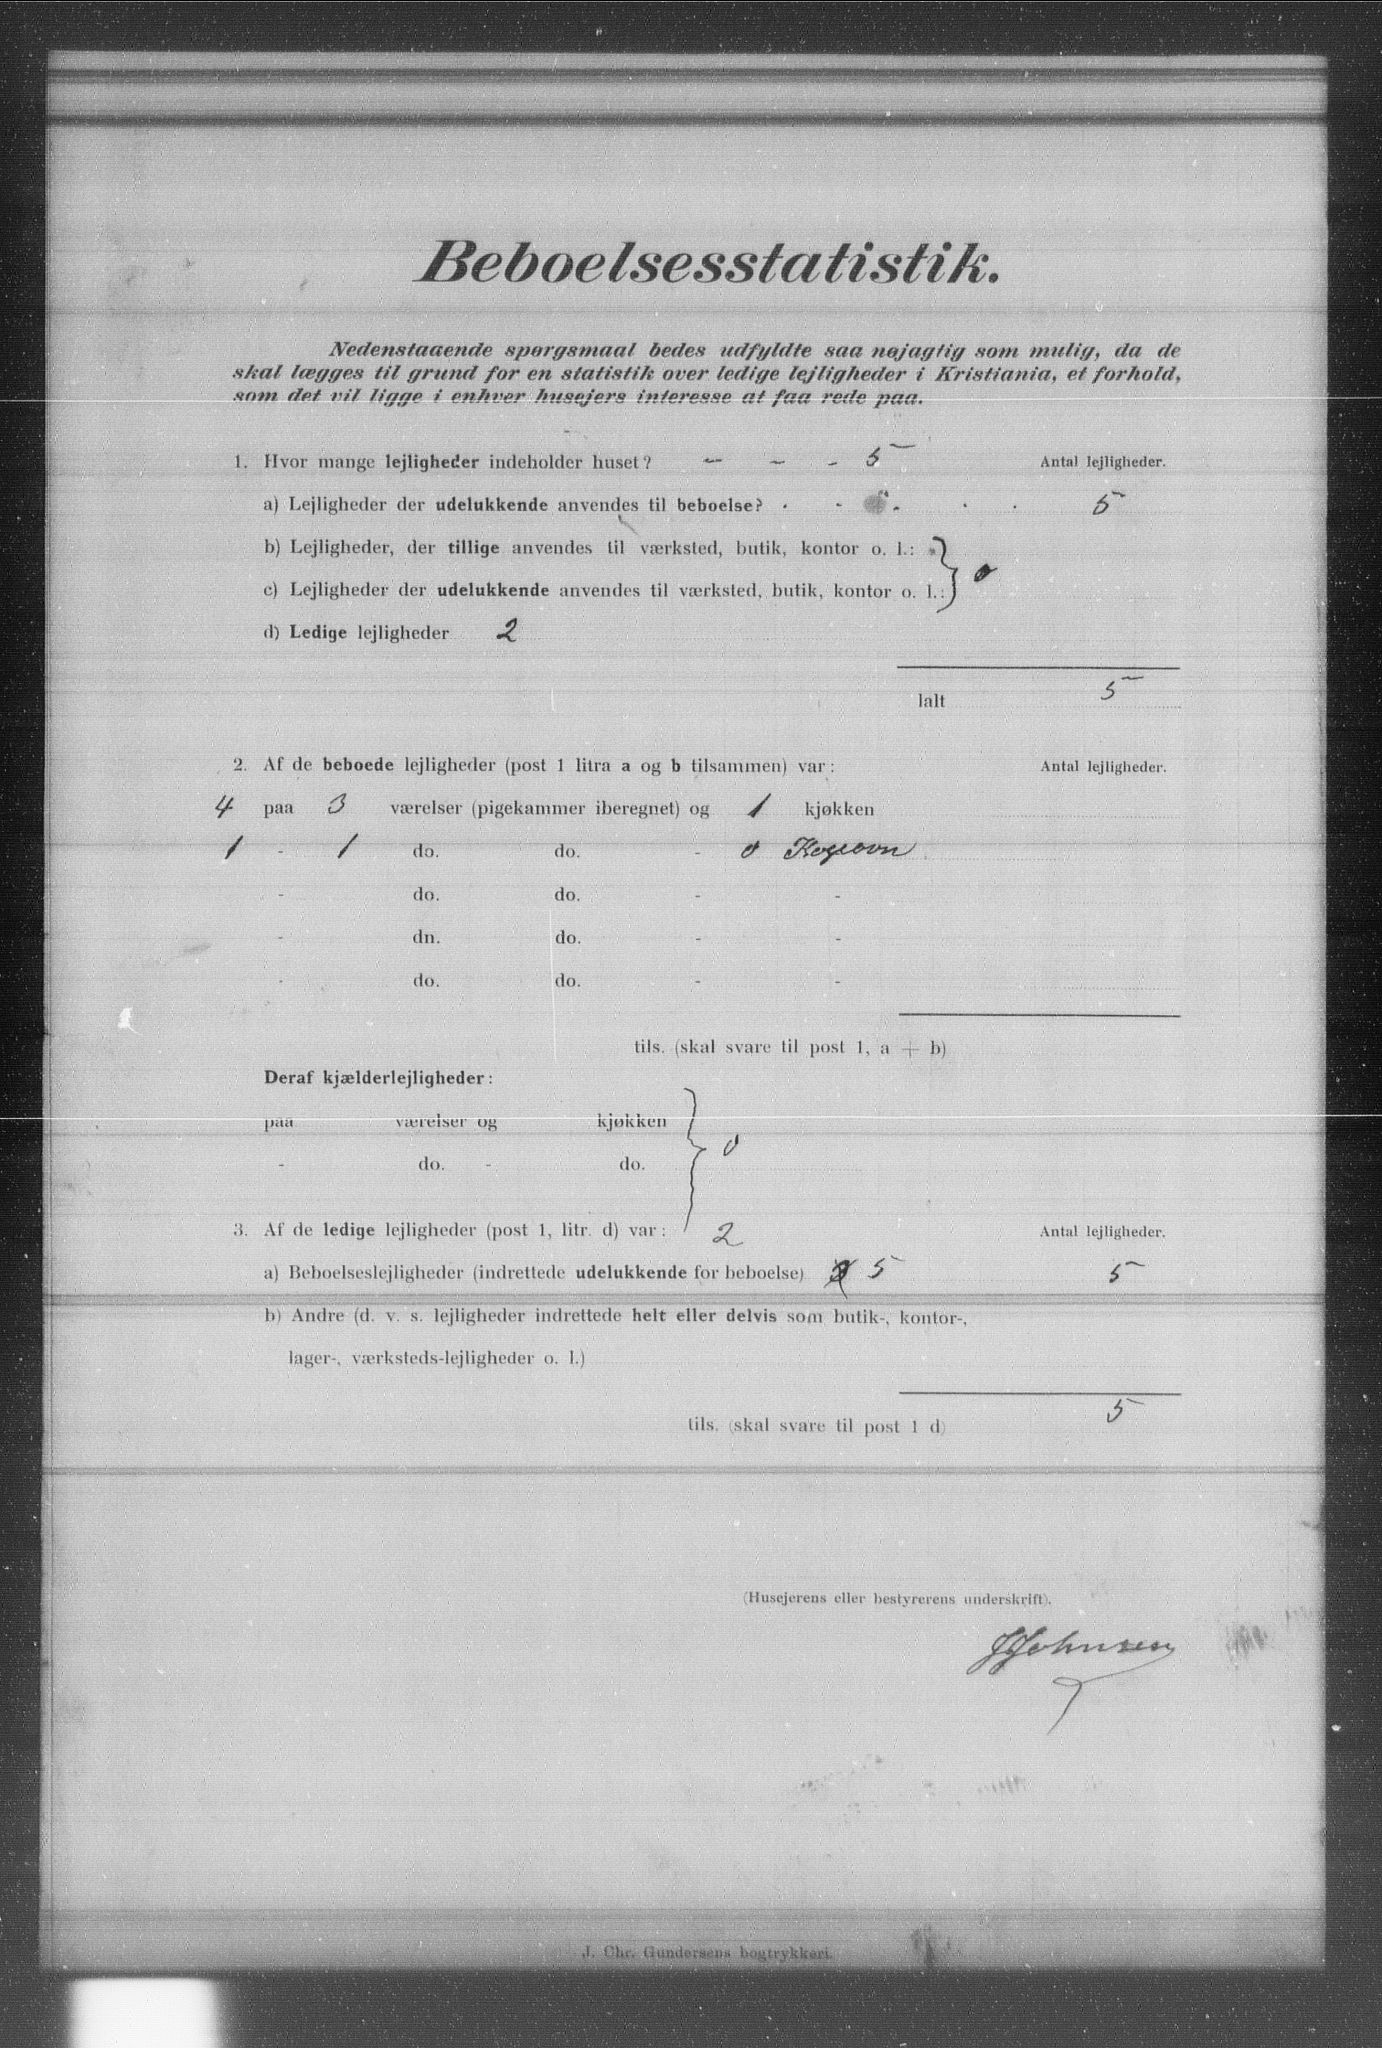 Beboelsesstatistik.
Nedenstaaende spørgsmaal bedes udfyldte saa nøjagtig som mulig, da de
skal lægges til grund for en statistik over ledige lejligheder i Kristiania, et forhold,
som det vil ligge i enhver husejers interesse at faa rede paa.
1. Hvor mange lejligheder indeholder huset? - - - 5 Antal lejligheder.
a) Lejligheder der udelukkende anvendes til beboelse? 5
b) Lejligheder, der tillige anvendes til værksted, butik, kontor o. l.:
c) Lejligheder der udelukkende anvendes til værksted, butik, kontor o. l.: } 0
d) Ledige lejligheder 2
Ialt 5
2. Af de beboede lejligheder (post 1 litra a og b tilsammen) var: Antal lejligheder.
4 paa 3 værelser (pigekammer iberegnet) og 1 kjøkken
1 - 1 do. do. - 0 Kogeovn
- do. do. - -
- dn. do. - -
- do. do. - -
tils. (skal svare til post 1, a + b)
Deraf kjælderlejligheder:
paa værelser og kjøkken
- do. - do. } 0
3. Af de ledige lejligheder (post 1, litr. d) var: 2 Antal lejligheder.
a) Beboelseslejligheder (indrettede udelukkende for beboelse) 5 5
b) Andre (d. v. s. lejligheder indrettede helt eller delvis som butik-, kontor-,
lager-, værksteds-lejligheder o. l.)
tils. (skal svare til post 1 d) 5
(Husejerens eller bestyrerens underskrift).
J Johnsen
J. Chr. Gundersens bogtrykkeri.